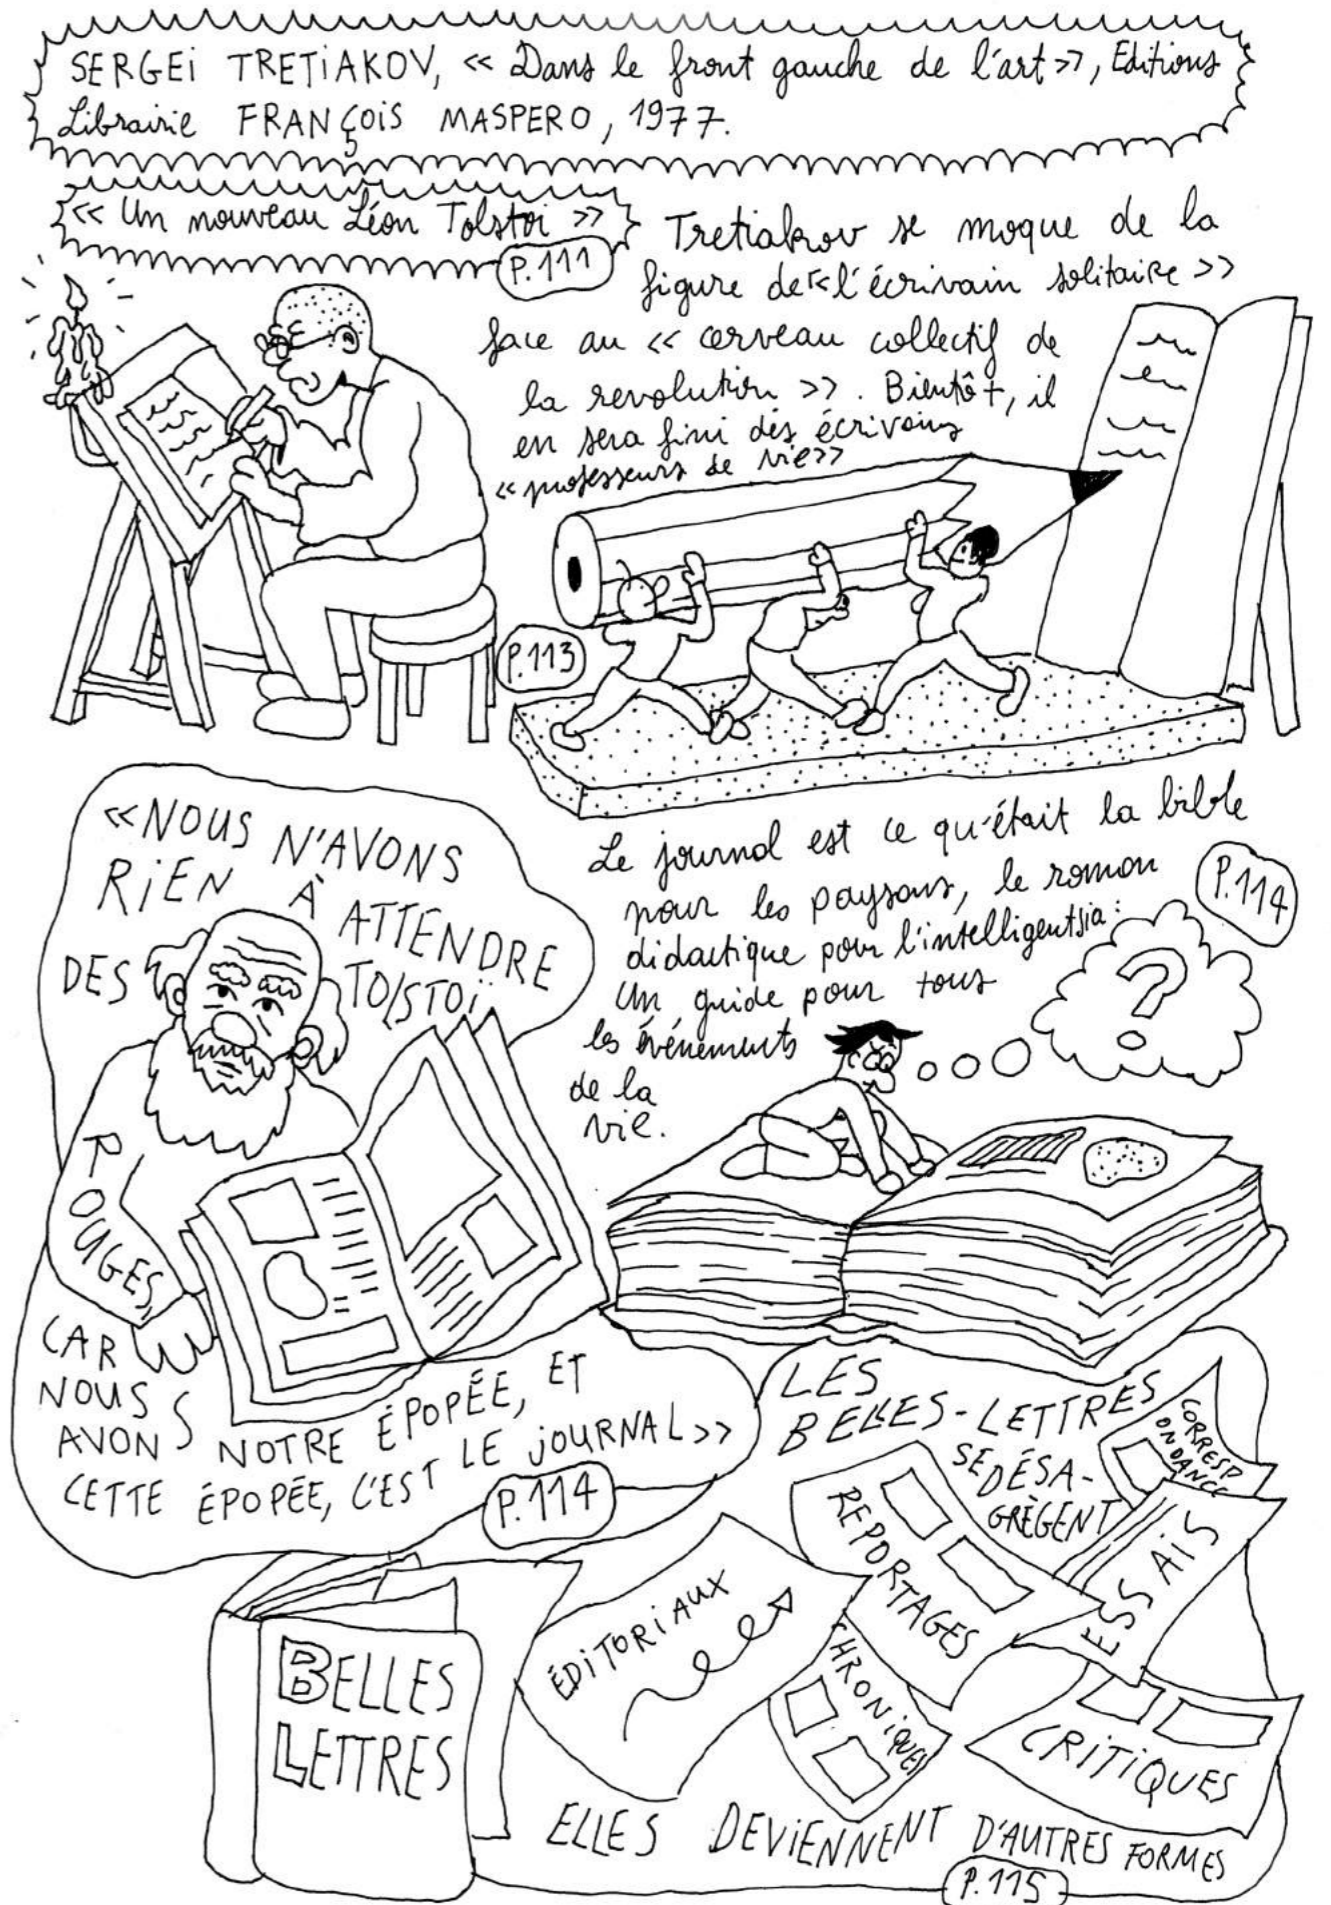 SERGEI TRETIAKOV, « Dans le front gauche de l'art », Editions
Librairie FRANÇOIS MASPERO, 1977.
« Un nouveau Léon Tolstoi »
P.111
Tretiakov se moque de la
figure de « l'écrivain solitaire »
face au « cerveau collectif de
la revolution ». Bientôt, il
en sera fini des écrivains
« professeurs de vie »
P.113
« NOUS N'AVONS
RIEN À ATTENDRE
DES TOLSTOÏ
ROUGES,
CAR
NOUS
AVONS NOTRE ÉPOPÉE, ET
CETTE ÉPOPÉE, C'EST LE JOURNAL »
P.114
Le journal est ce qu'était la bible
pour les paysans, le roman
didactique pour l'intelligentsia :
Un guide pour tous
les événements
de la
vie.
P.114
?
LES
BELLES-LETTRES
SE DÉSA-
GRÈGENT
CORRESP
ONDANCE
REPORTAGES
ESSAIS
ÉDITORIAUX
CHRONIQUES
CRITIQUES
BELLES
LETTRES
ELLES DEVIENNENT D'AUTRES FORMES
P.115